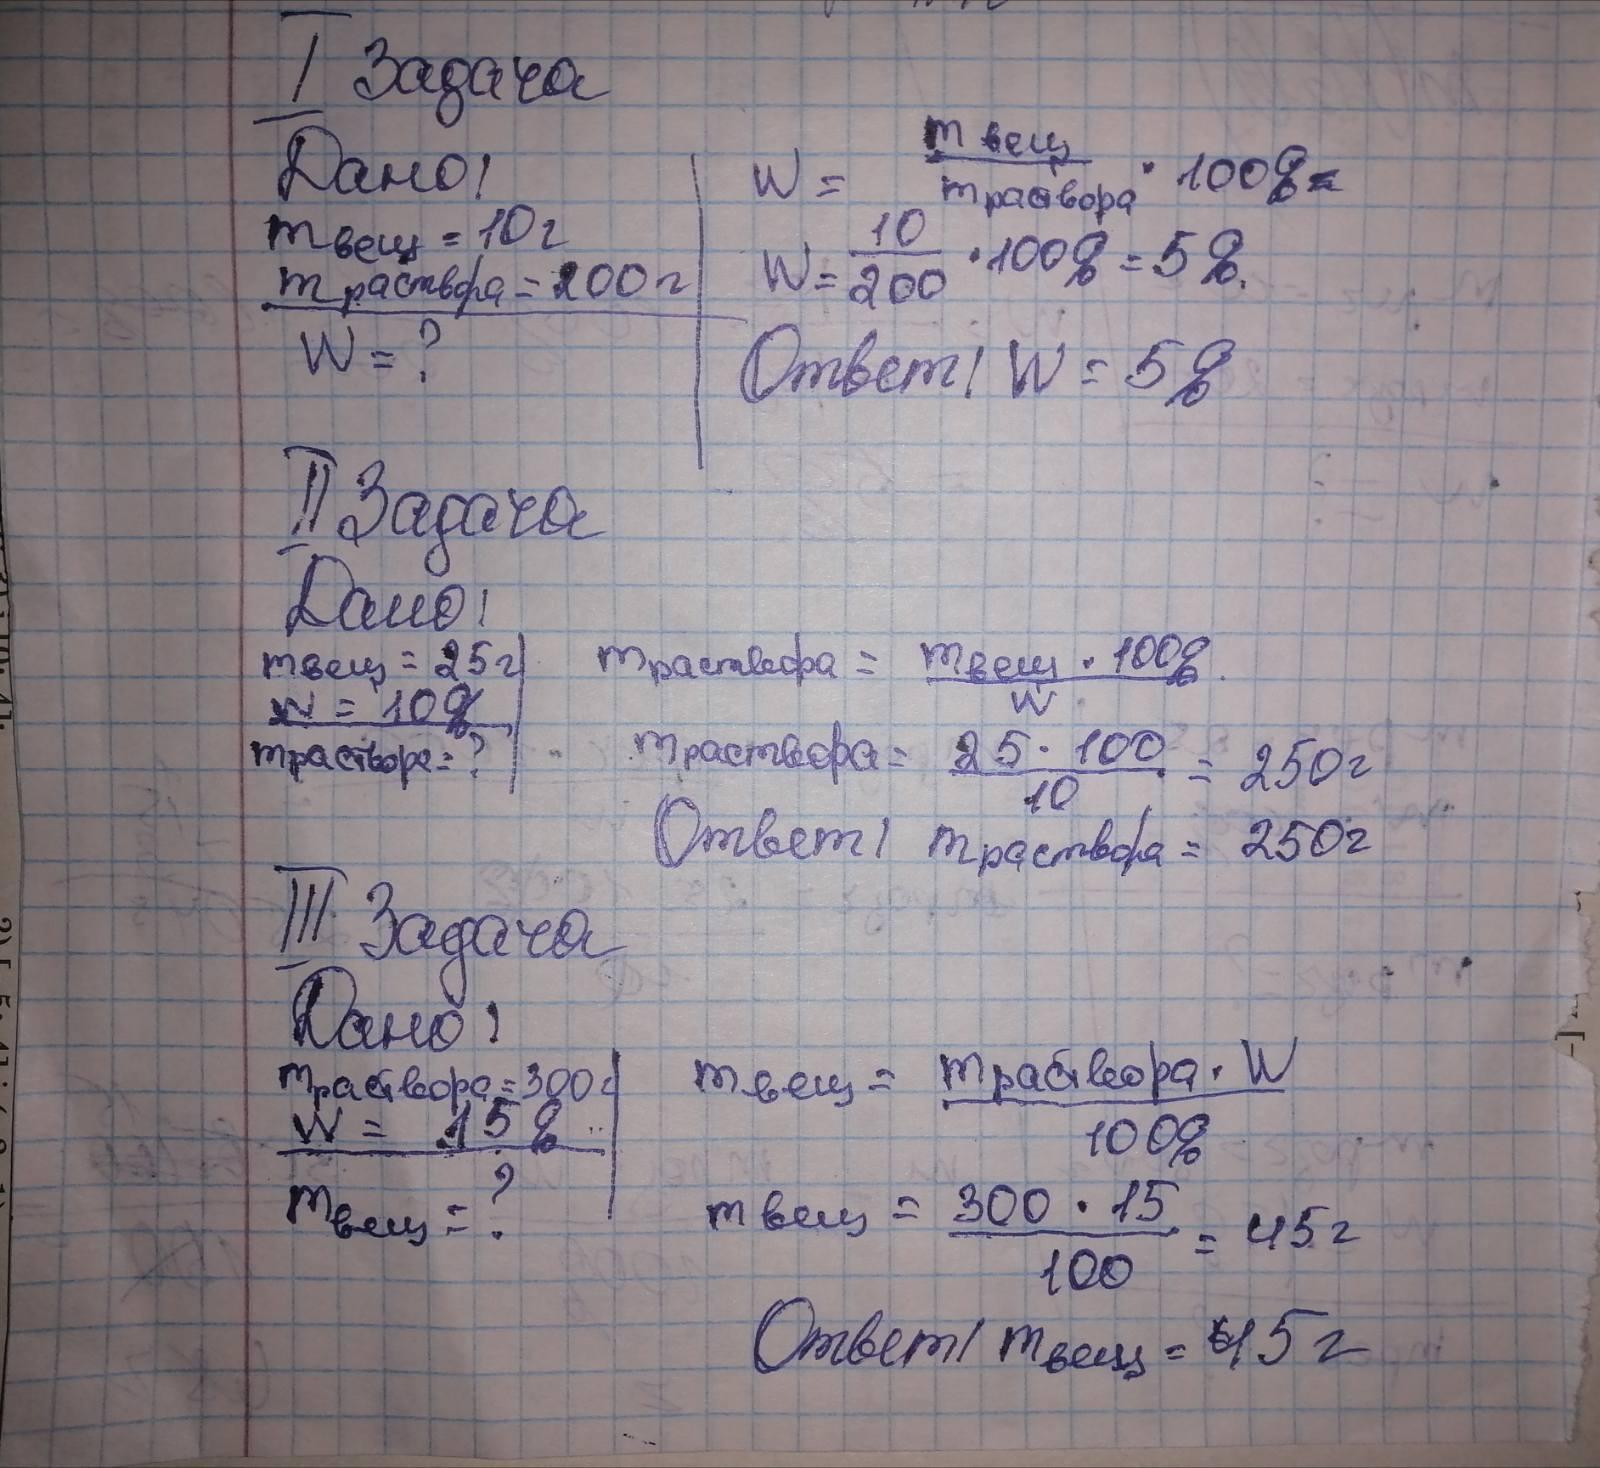 I Задача
Дано:
m вещ = 10 г
m раствора = 200 г
W = ?
W = m вещ / m раствора · 100% =
W = 10 / 200 · 100% = 5%.
Ответ: W = 5%
II Задача
Дано:
m вещ = 25 г
W = 10%
m раствора = ?
m раствора = m вещ · 100% / W
m раствора = 25 · 100 / 10 = 250 г
Ответ: m раствора = 250 г
III Задача
Дано:
m раствора = 300 г
W = 15%
m вещ = ?
m вещ = m раствора · W / 100%
m вещ = 300 · 15 / 100 = 45 г
Ответ: m вещ = 45 г